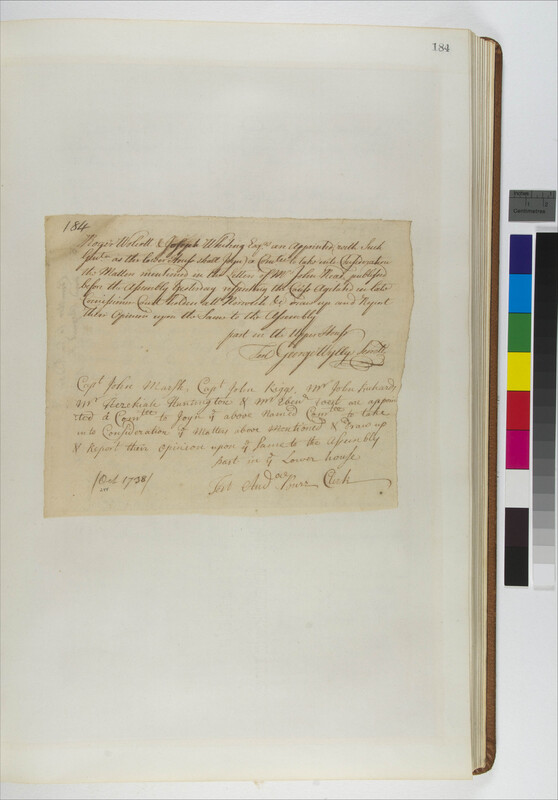 184
184
Roger Wolcott & Joseph Whiting Esqrs are Appointed, with Such
Gentn as the lower House shall Joyn, a Comtee to take into Consideration
the Matters mentioned in the Letter of Mr John Read, published
before the Assembly Yesterday respecting the Case Agitated in late
Commission Court holden att Norwich, & Draw up and Report
their Opinion upon the Same to the Assembly
past in the Upper House
Test George Wyllys Secretr
Capt John Marsh, Capt John Riggs, Mr John Richards
Mr Hezekiah Huntington & Mr Ebenr West are appoin
ted a Comtee to Joyn ye above Named Comtee to take
into Consideration ye Matters above Mentioned & Draw up
& Report their Opinion upon ye Same to the Assembly
past in ye Lower house
Test Andw Clerk
/Oct 1738/
Inches
1 2
Centimetres